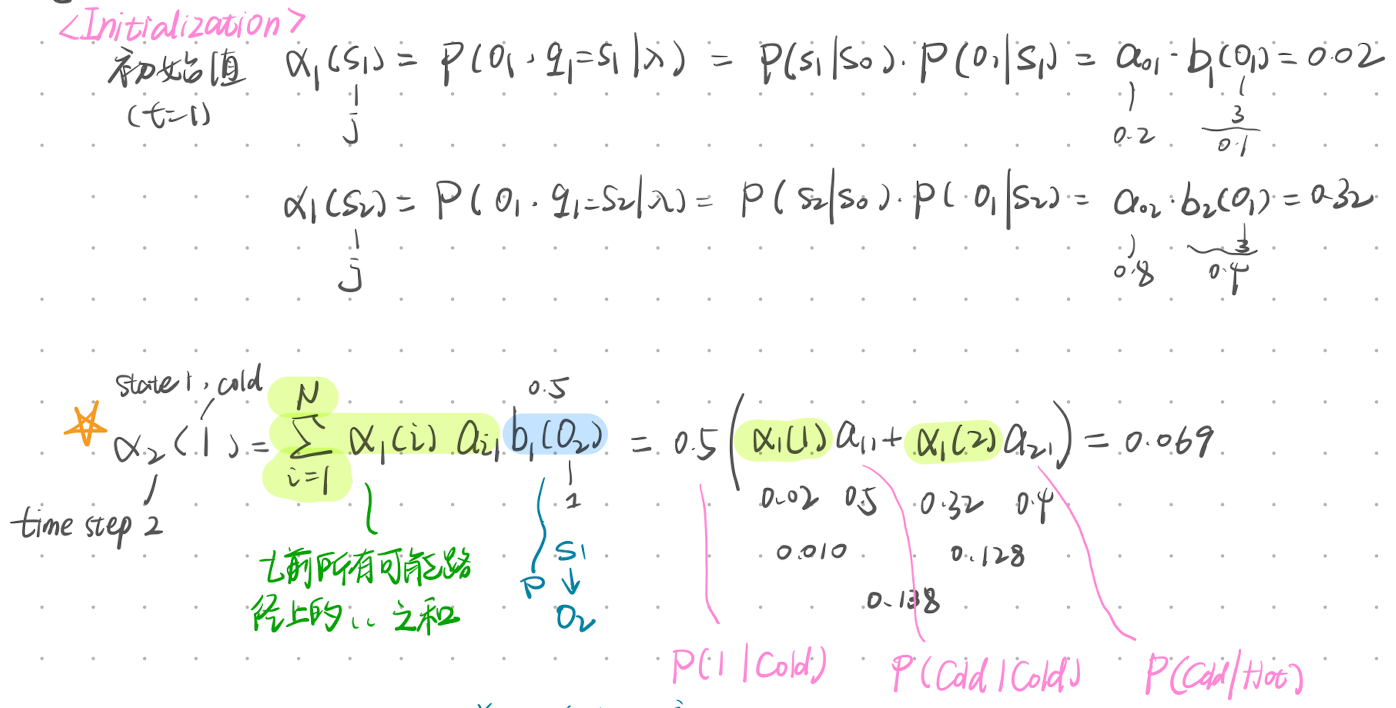 <Initialization>
初始值 α₁(S₁) = P(O₁, q₁=S₁|λ) = P(S₁|S₀)·P(O₁|S₁) = a₀₁·b₁(O₁) = 0.02
(t=1) j 0.2 3 0.1
α₁(S₂) = P(O₁, q₁=S₂|λ) = P(S₂|S₀)·P(O₁|S₂) = a₀₂·b₂(O₁) = 0.32
j 0.8 3 0.4
state 1, cold 0.5
α₂(1) = ∑ N i=1 α₁(i) aᵢ₁ b₁(O₂) = 0.5(α₁(1)a₁₁ + α₁(2)a₂₁) = 0.069
time step 2 1 0.02 0.5 0.32 0.4
t前所有可能路 P S₁ 0.010 0.128
径上的 .. 之和 ↓ O₂ 0.138
P(1|Cold) P(Cold|Cold) P(Cold|Hot)